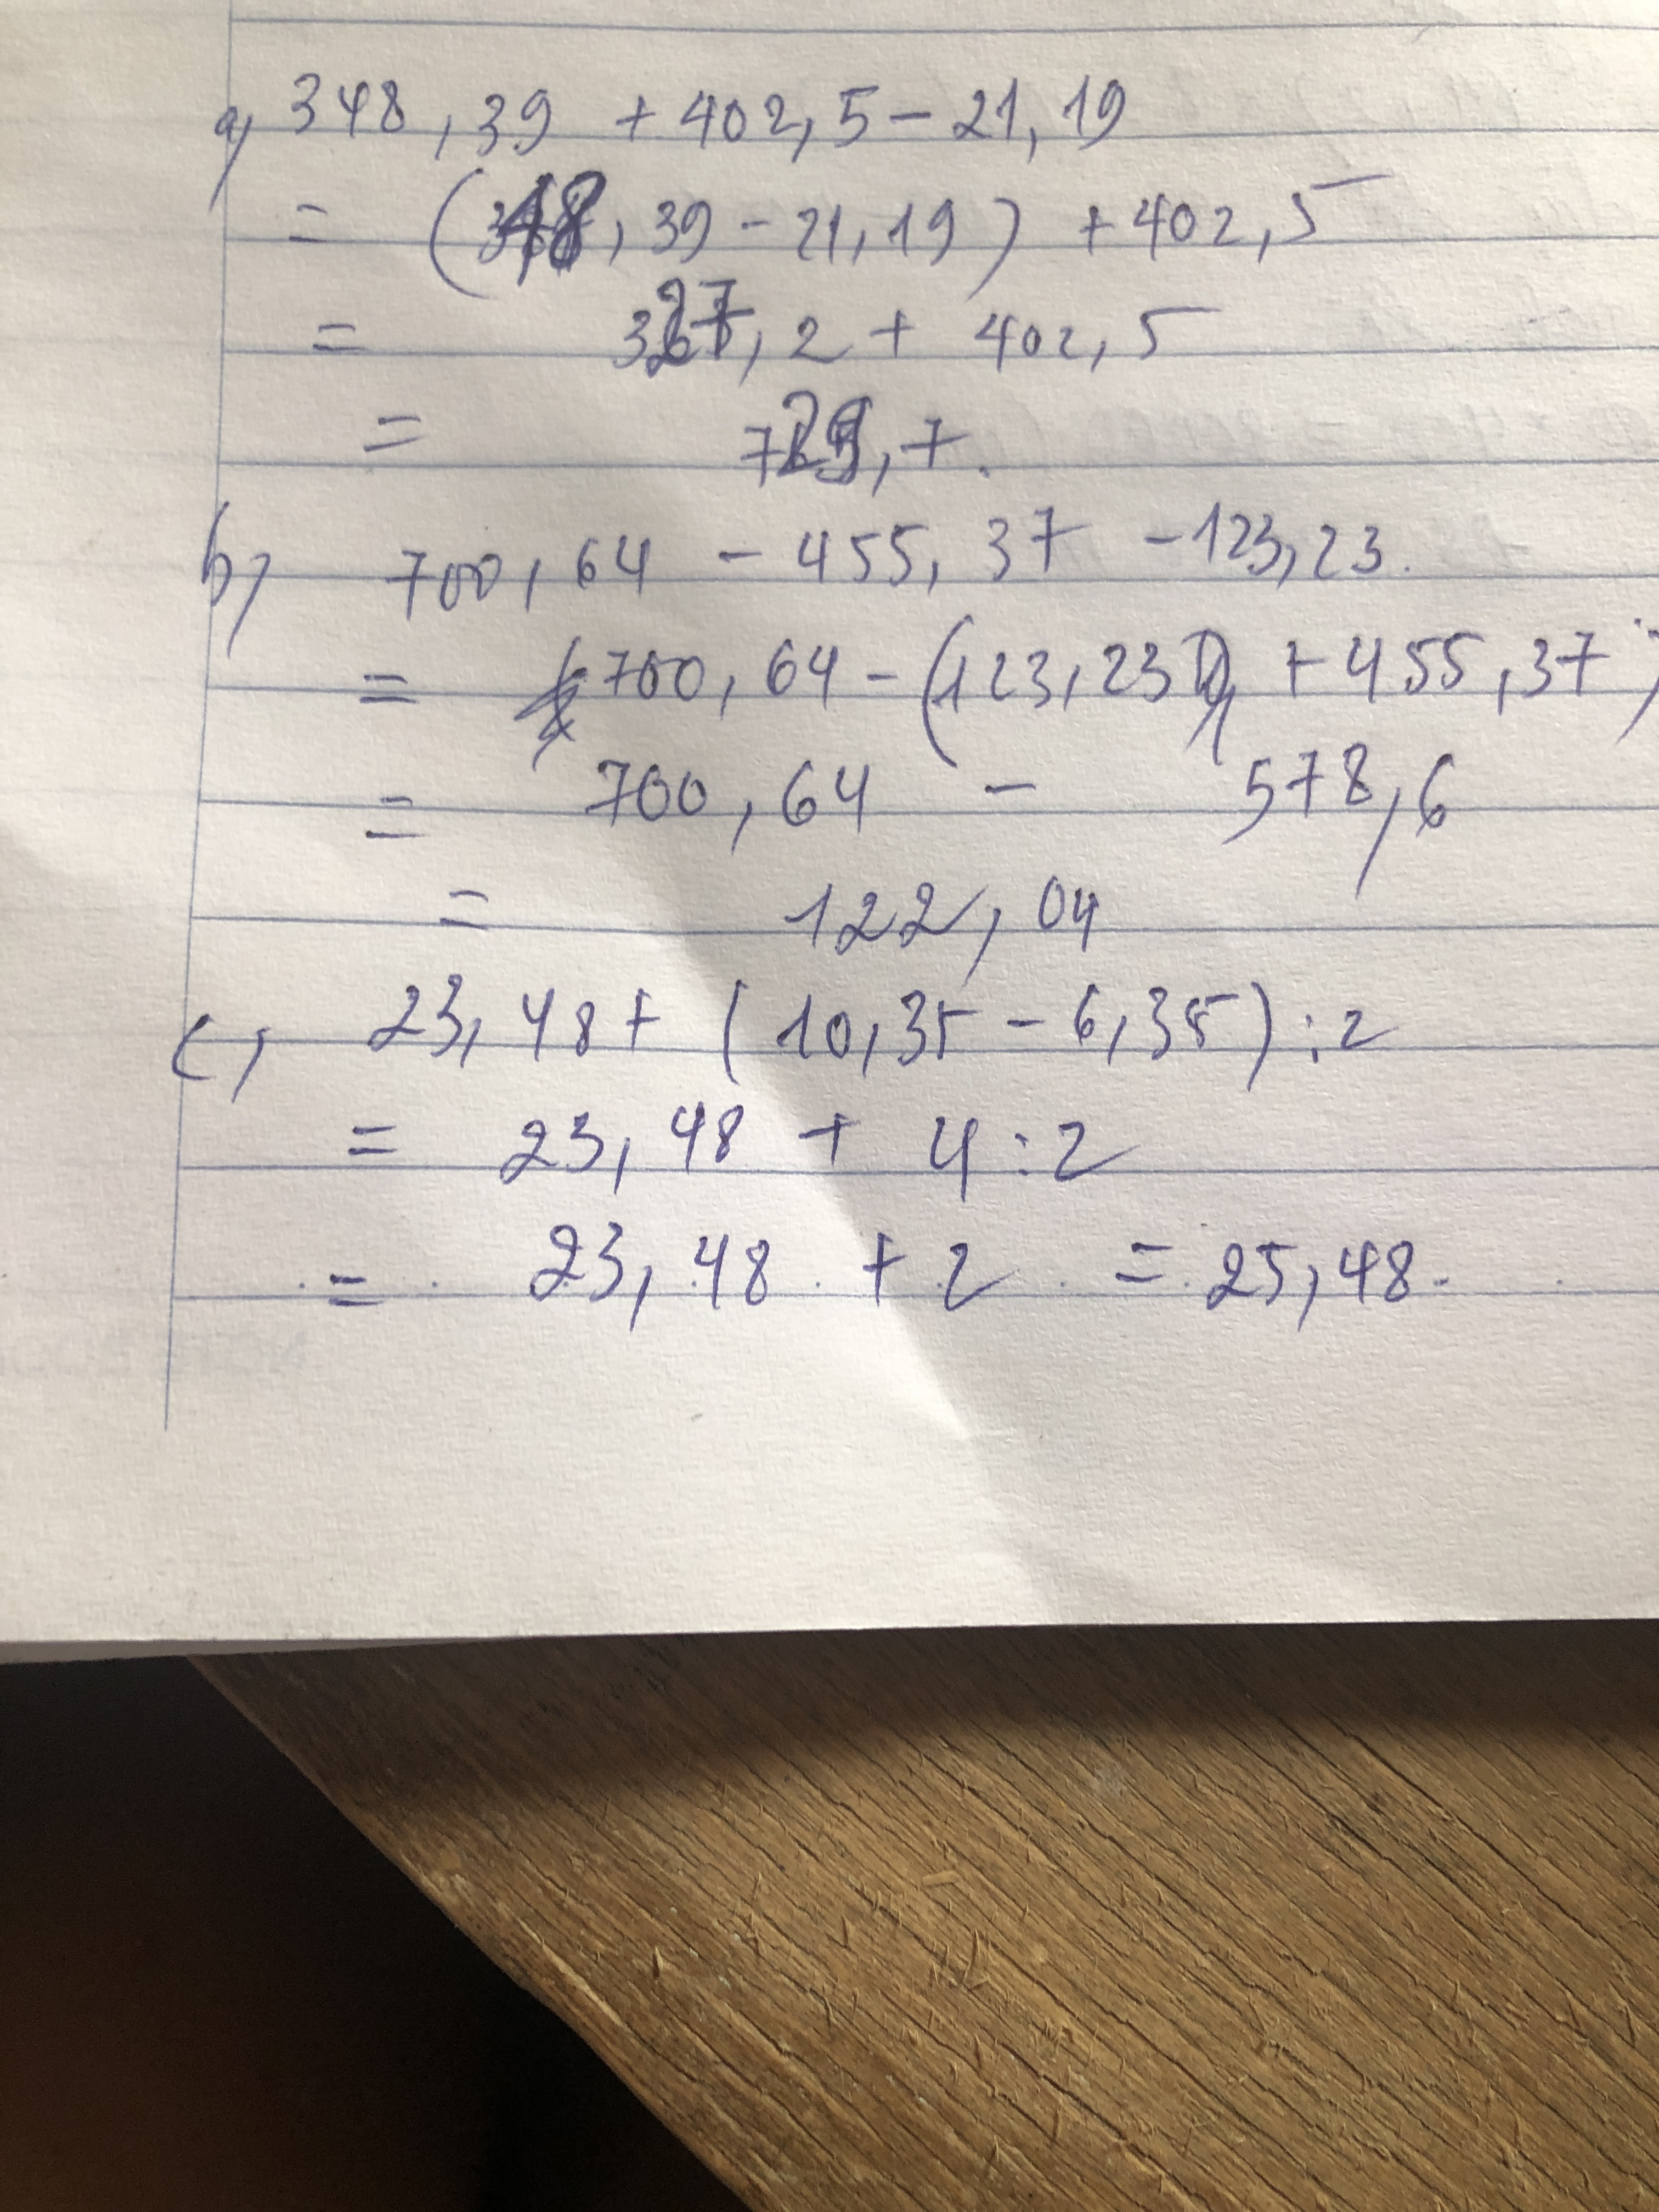 a, 348,39 + 402,5 - 21,19
= (348,39 - 21,19) + 402,5
= 327,2 + 402,5
= 729,7.
b, 700,64 - 455,37 - 123,23.
= 700,64 - (123,23 + 455,37)
= 700,64 - 578,6
= 122,04
c, 23,48 + (10,35 - 6,35) : 2
= 23,48 + 4 : 2
= 23,48 + 2 = 25,48.